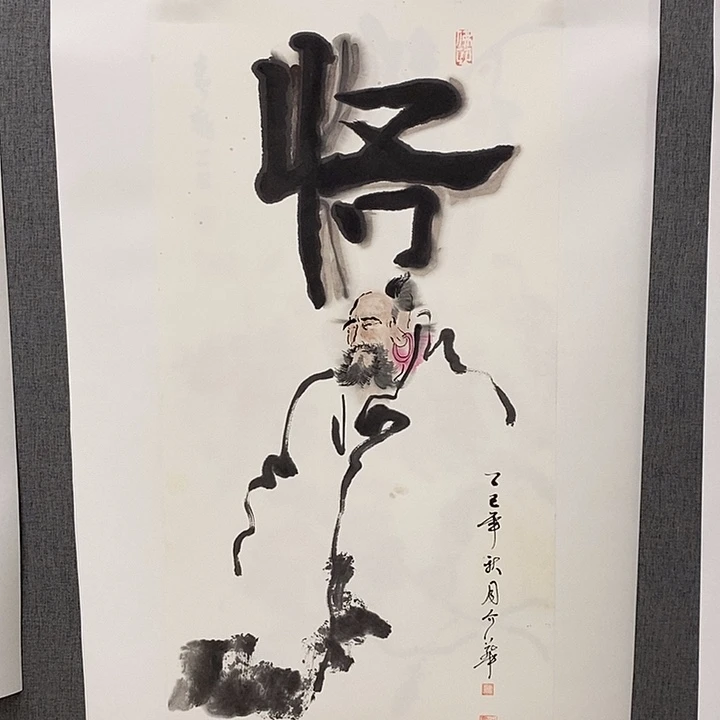 悟
乙巳年秋月介華